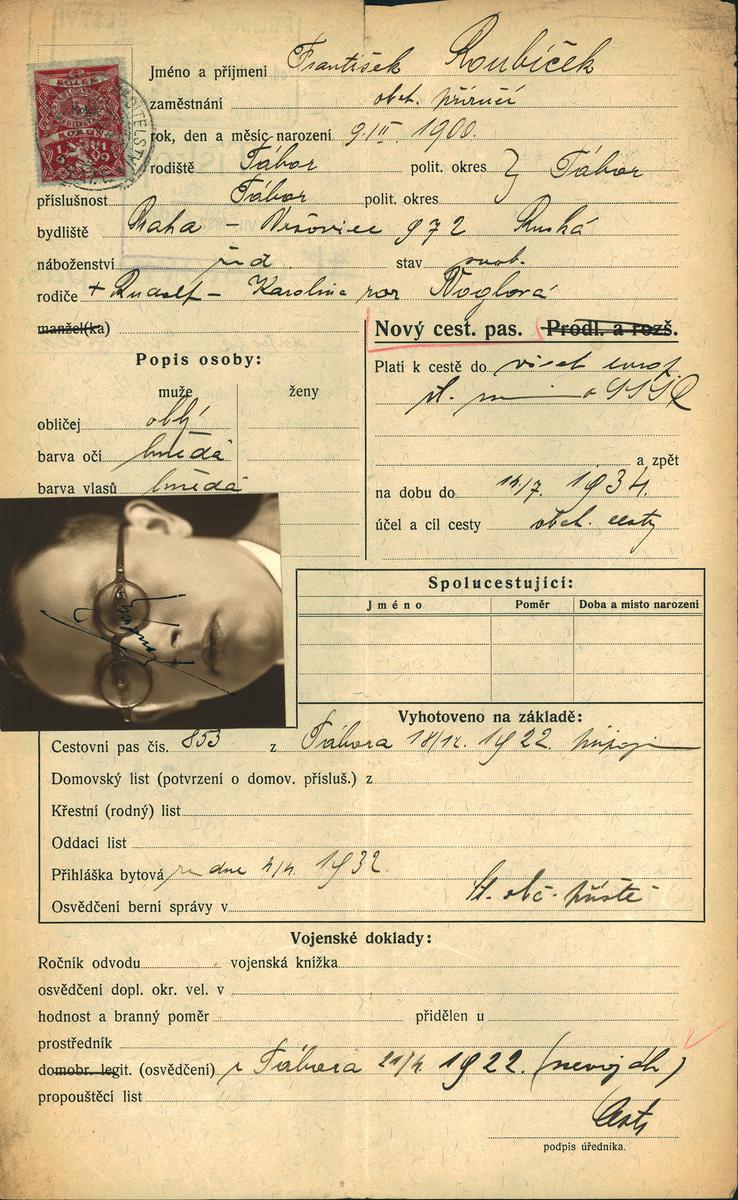 KOLEK
KORUN
Jméno a příjmení František Roubíček
zaměstnání obch. příručí
rok, den a měsíc narození 1900.
rodiště Tábor polit. okres } Tábor
příslušnost Tábor polit. okres
bydliště Praha – Vršovice 972 Ruská
náboženství žid. stav svob.
rodiče + Rudolf – Karolina roz Voglová
manžel(ka)
Nový cest. pas. Prodl. a rozš.
Popis osoby:
muže ženy
obličej oblý
barva očí hnědá
barva vlasů hnědá
Platí k cestě do všech evrop.
st. mimo SSSR
a zpět
na dobu do 14/7. 1934.
účel a cíl cesty obch. cesty
Spolucestující:
Jméno Poměr Doba a místo narození
Vyhotoveno na základě:
Cestovní pas čís. 853 z Tábora 18/12. 1922.
Domovský list (potvrzení o domov. přísluš.) z
Křestní (rodný) list
Oddací list
Přihláška bytová ze dne 4/4. 1932.
Osvědčení berní správy v
St. obč. příště
Vojenské doklady:
Ročník odvodu vojenská knížka
osvědčení dopl. okr. vel. v
hodnost a branný poměr přidělen u
prostředník
domobr. legit. (osvědčení) z Tábora 1922. (nevoják)
propouštěcí list
podpis úředníka.